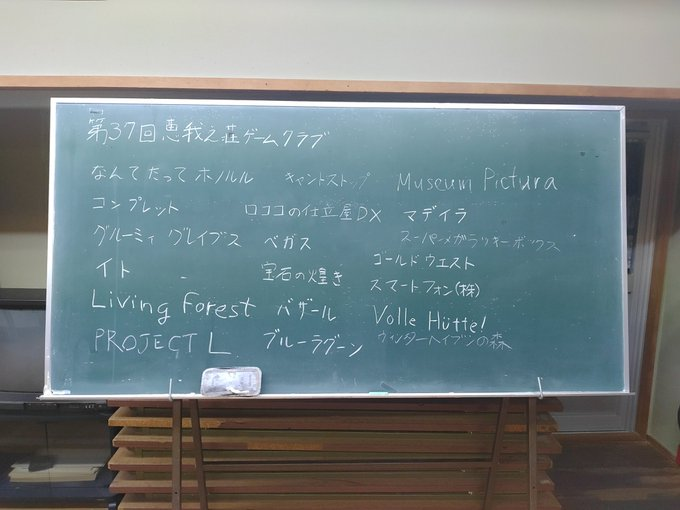 第37回 恵我之荘ゲームクラブ
なんてたって ホノルル
コンプレット
グルーミィ グレイブス
イト
Living Forest
PROJECT L
キャントストップ
ロココの仕立屋DX
ベガス
宝石の煌き
バザール
ブルーラグーン
Museum Pictura
マデイラ
スーパーメガラッキーボックス
ゴールドウエスト
スマートフォン(株)
Volle Hütte!
ウィンターヘイブンの森